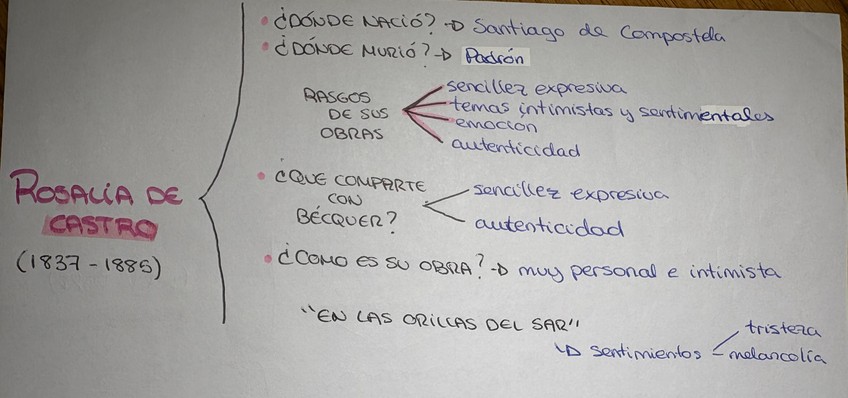 ROSALÍA DE
CASTRO
(1837-1885)
• ¿DÓNDE NACIÓ? → Santiago de Compostela
• ¿DÓNDE MURIÓ? → Padrón
RASGOS
DE SUS
OBRAS
sencillez expresiva
temas intimistas y sentimentales
emoción
autenticidad
• ¿QUE COMPARTE
CON
BÉCQUER?
sencillez expresiva
autenticidad
• ¿COMO ES SU OBRA? → muy personal e intimista
"EN LAS ORILLAS DEL SAR"
↳ sentimientos
tristeza
melancolía